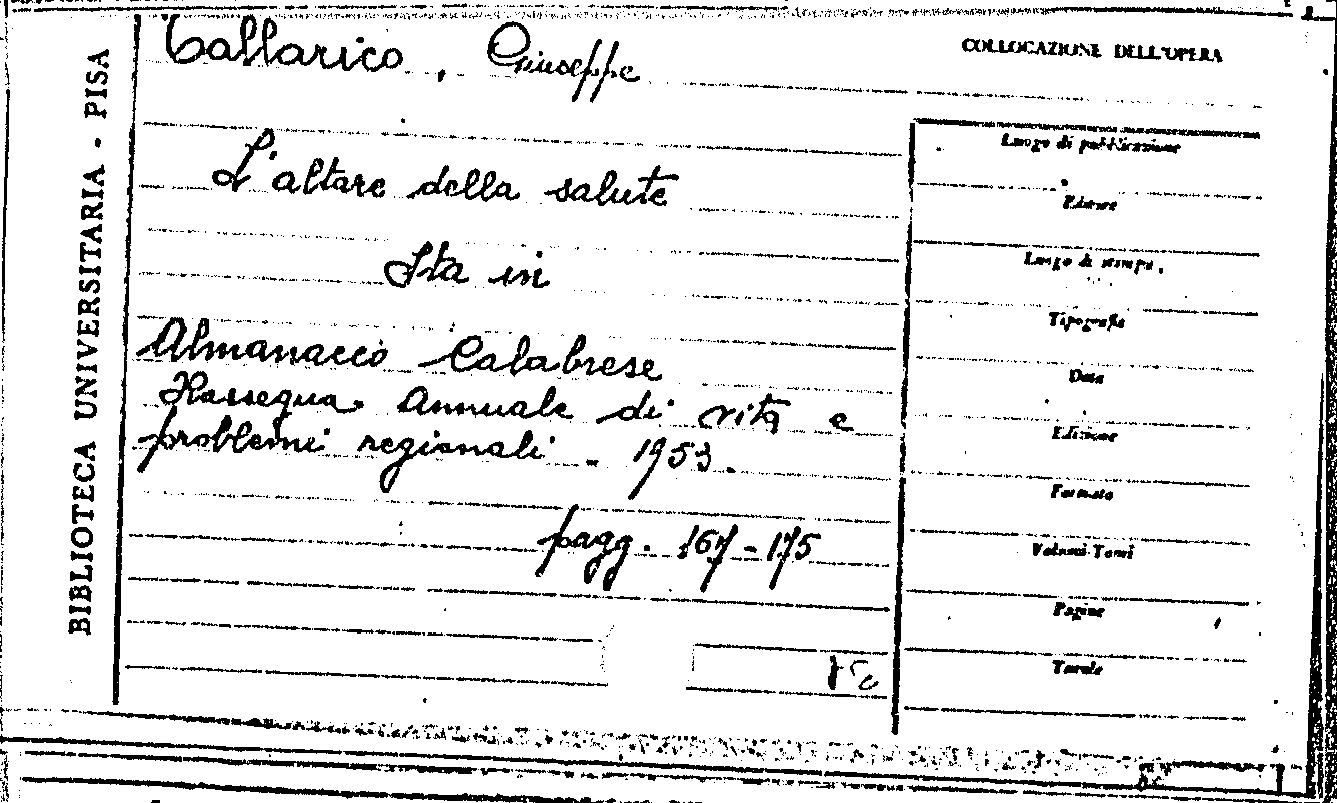 BIBLIOTECA UNIVERSITARIA - PISA
Tallarico, Giuseppe
COLLOCAZIONE DELL'OPERA
L'altare della salute
Sta in
Almanacco Calabrese
Rassegna Annuale di vita e
problemi regionali - 1953.
pagg. 167-175
Luogo di pubblicazione
Editore
Luogo di stampa
Tipografia
Data
Edizione
Formato
Volumi-Tomi
Pagine
Tavole